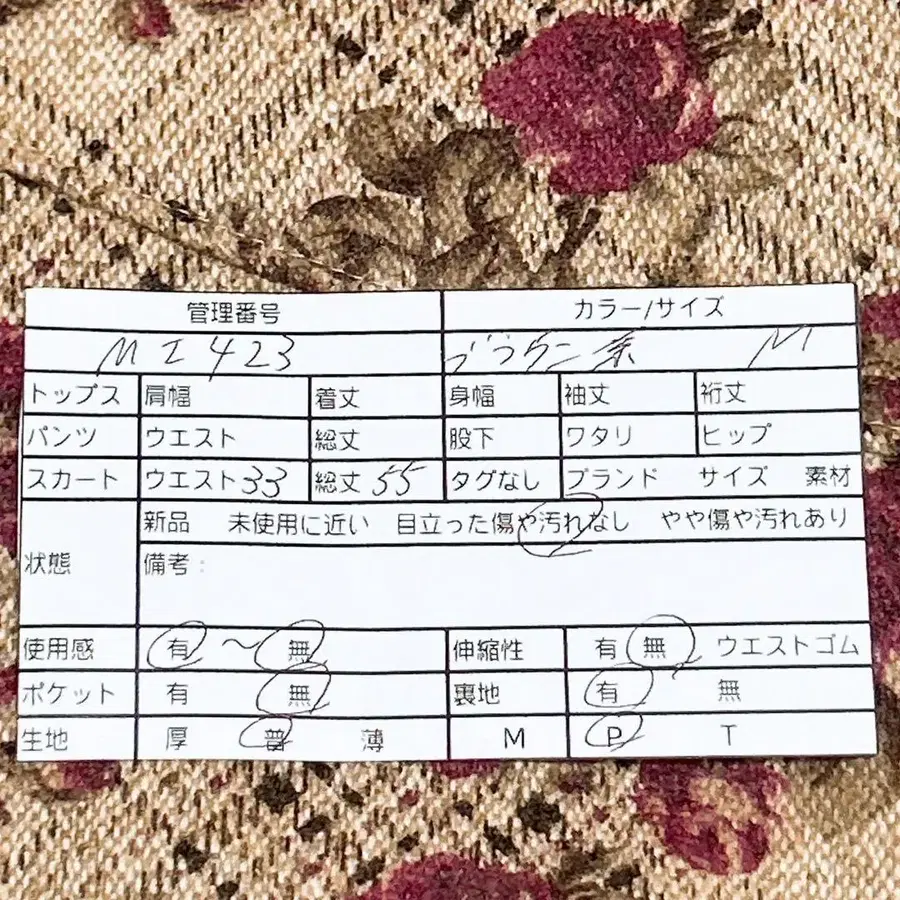 管理番号 カラー/サイズ
MI423 ブラウン系 M
トップス 肩幅 着丈 身幅 袖丈 裄丈
パンツ ウエスト 総丈 股下 ワタリ ヒップ
スカート ウエスト33 総丈55 タグなし ブランド サイズ 素材
状態 新品 未使用に近い 目立った傷や汚れなし やや傷や汚れあり
備考:
使用感 有 〜 無 伸縮性 有 無 ウエストゴム
ポケット 有 無 裏地 有 無
生地 厚 普 薄 M P T